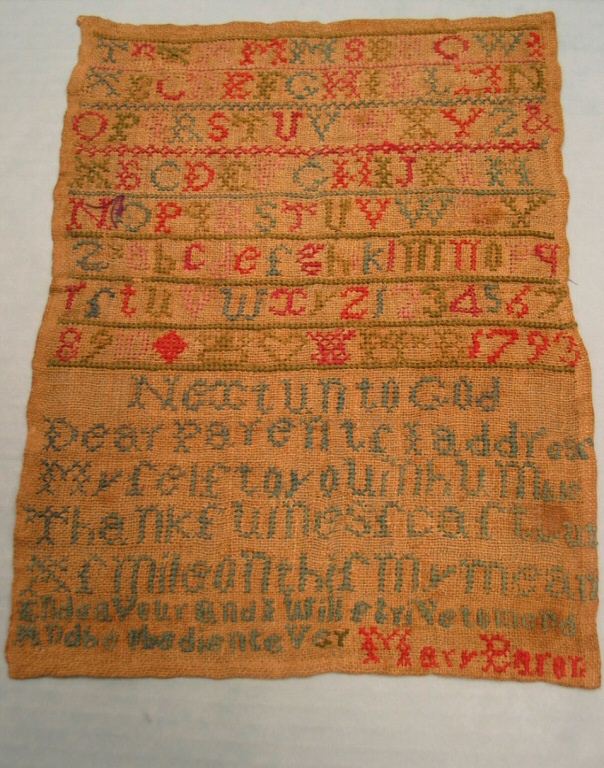 A B C D E F G H I K L M N
O P Q R S T U V W X Y Z &
A B C D E F G H I J K L M
N O P Q R S T U V W X Y
Z a b c d e f g h i k l m n o p q
r ſ t u v w x y z 1 2 3 4 5 6 7
8 9 1793
Next unto God
Dear Parentſ I addreſs
My ſelf to you in hUmble
Thankfulneſſ caſt but
A ſmile on thiſ my mean
Endeavour and I will ſtrive to mend
And be obedient eVer Mary